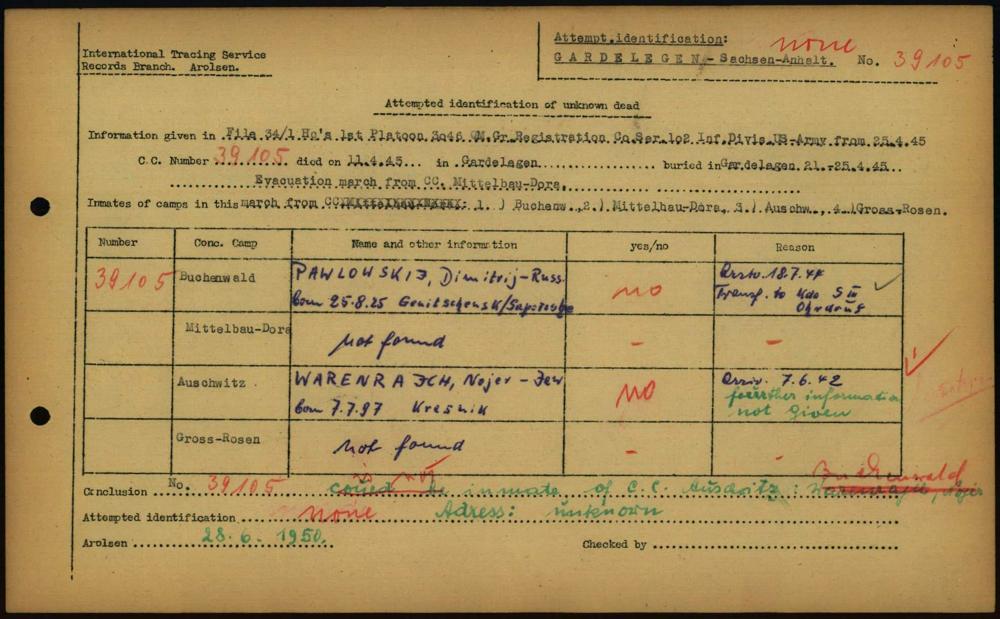 International Tracing Service
Records Branch. Arolsen.
Attempt.identification: none
GARDELEGEN - Sachsen-Anhalt. No. 39105
Attempted identification of unknown dead
Information given in File 34/1 Hq's 1st Platoon 3046 QM.Gr.Registration Co Ser.102 Inf.Divis.US-Army from 25.4.45
C.C. Number 39105 died on 11.4.45 in Gardelagen buried in Gardelagen 21.-25.4.45
Evacuation march from CC. Mittelbau-Dora.
Inmates of camps in this march from CC : 1.) Buchenw., 2.) Mittelbau-Dora, 3.) Auschw., 4.) Gross-Rosen.
Number Conc. Camp Name and other information yes/no Reason
39105 Buchenwald PAWLOWSKIJ, Dimitrij-Russ. no 18.7.44
born 25.8.25 Genitschensk/ Transf. to Kdo S III
Ohrdruf
Mittelbau-Dora not found - -
Auschwitz WARENRAJCH, - Jew no 7.6.42
born 7.7.97 Krasnik further information
not given
Gross-Rosen not found - -
Conclusion No. 39105 be inmate of C.C. Auschwitz: Buchenwald
Attempted identification none Adress: unknown
Arolsen 28.6.1950. Checked by